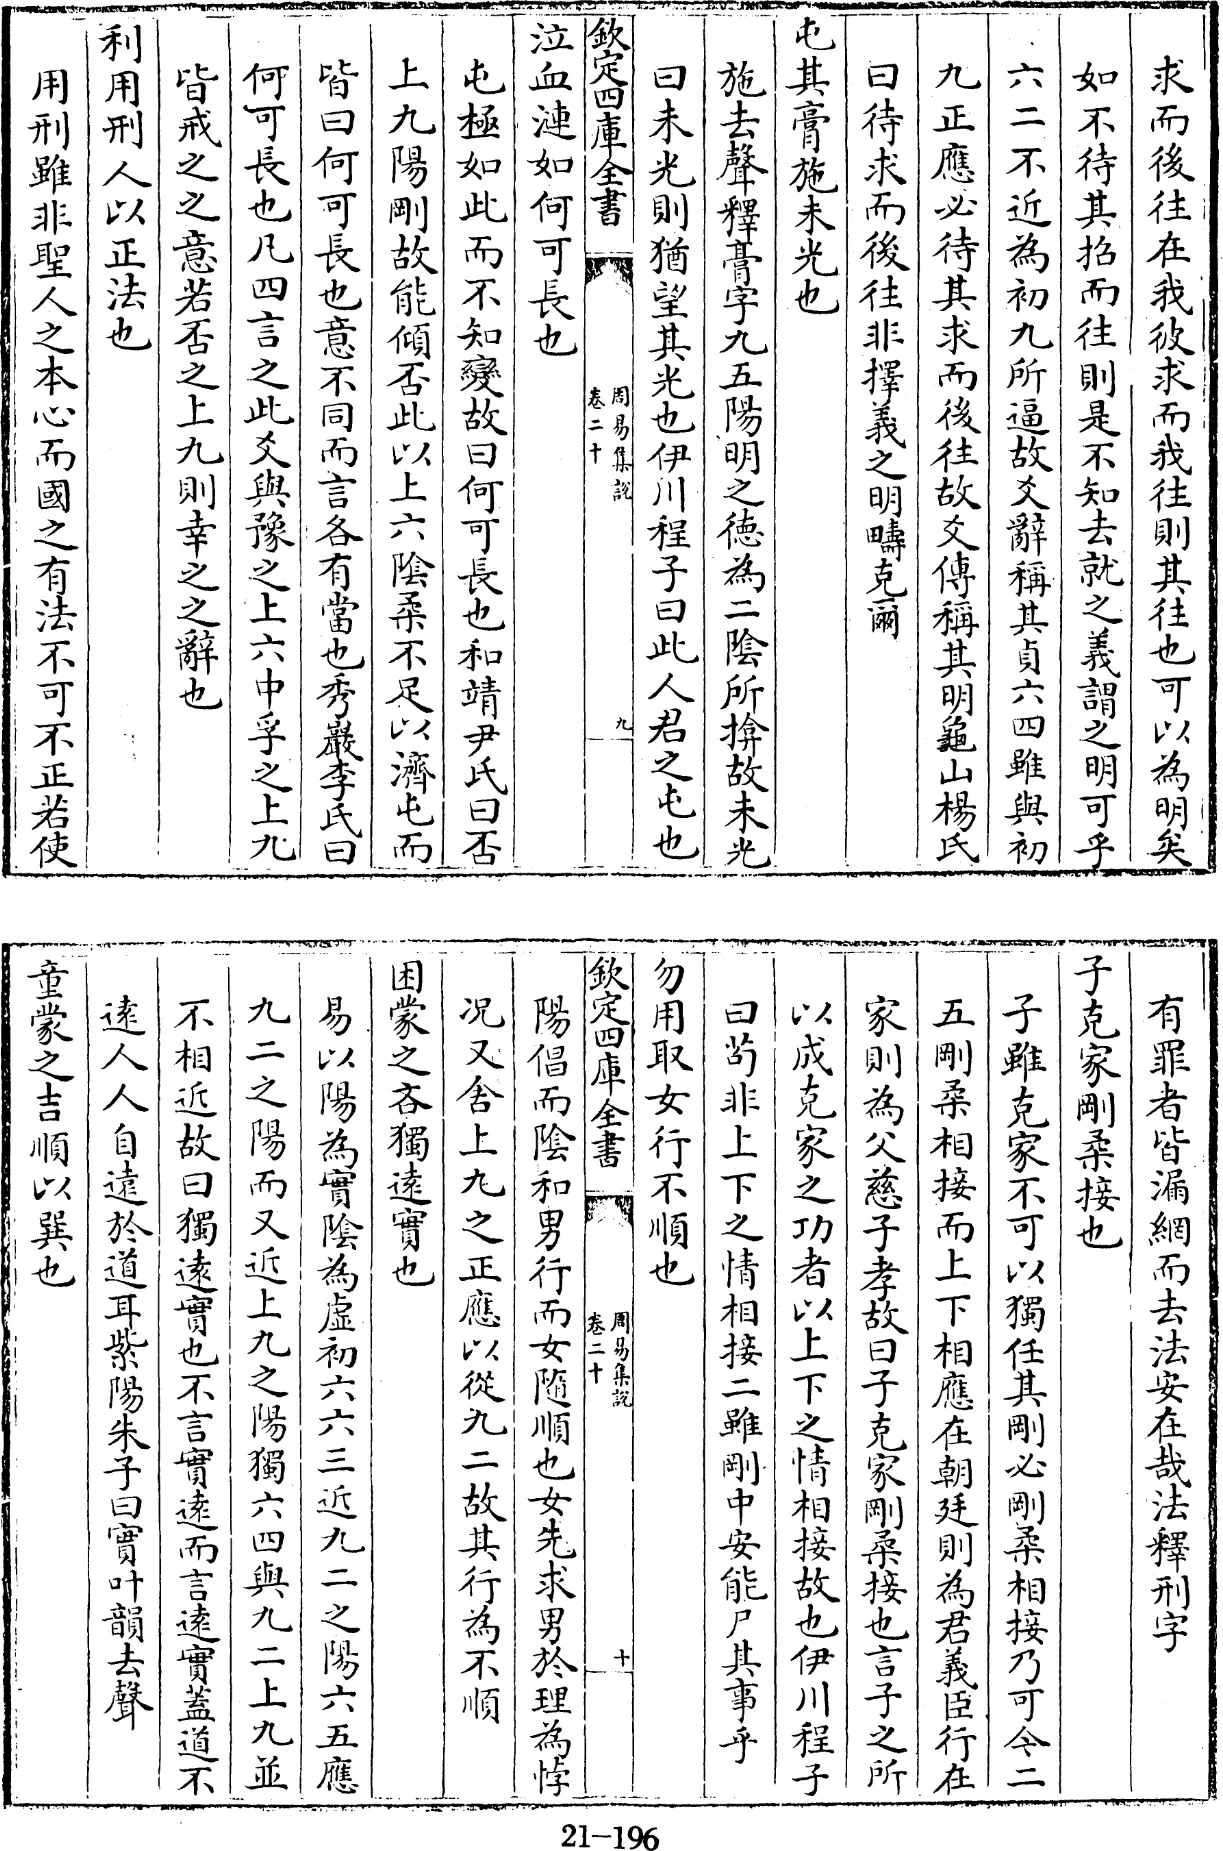 求而後往在我彼求而我往則其往也可以為明矣
如不待其招而往則是不知去就之義謂之明可乎
六二不近為初九所逼故爻辭稱其貞六四雖與初
九正應必待其求而後往故爻傳稱其明龜山楊氏
曰待求而後往非擇義之明疇克爾
屯其膏施未光也
施去聲釋膏字九五陽明之德為二陰所揜故未光
曰未光則猶望其光也伊川程子曰此人君之屯也
欽定四庫全書
周易集說
卷二十
九
泣血漣如何可長也
屯極如此而不知變故曰何可長也和靖尹氏曰否
上九陽剛故能傾否此以上六陰柔不足以濟屯而
皆曰何可長也意不同而言各有當也秀巖李氏曰
何可長也凡四言之此爻與豫之上六中孚之上九
皆戒之之意若否之上九則幸之之辭也
利用刑人以正法也
用刑雖非聖人之本心而國之有法不可不正若使
有罪者皆漏網而去法安在哉法釋刑字
子克家剛柔接也
子雖克家不可以獨任其剛必剛柔相接乃可今二
五剛柔相接而上下相應在朝廷則為君義臣行在
家則為父慈子孝故曰子克家剛柔接也言子之所
以成克家之功者以上下之情相接故也伊川程子
曰苟非上下之情相接二雖剛中安能尸其事乎
勿用取女行不順也
欽定四庫全書
周易集說
卷二十
十
陽倡而陰和男行而女隨順也女先求男於理為悖
況又舍上九之正應以從九二故其行為不順
困蒙之吝獨遠實也
易以陽為實陰為虛初六六三近九二之陽六五應
九二之陽而又近上九之陽獨六四與九二上九並
不相近故曰獨遠實也不言實遠而言遠實蓋道不
遠人人自遠於道耳紫陽朱子曰實叶韻去聲
童蒙之吉順以巽也
21-196